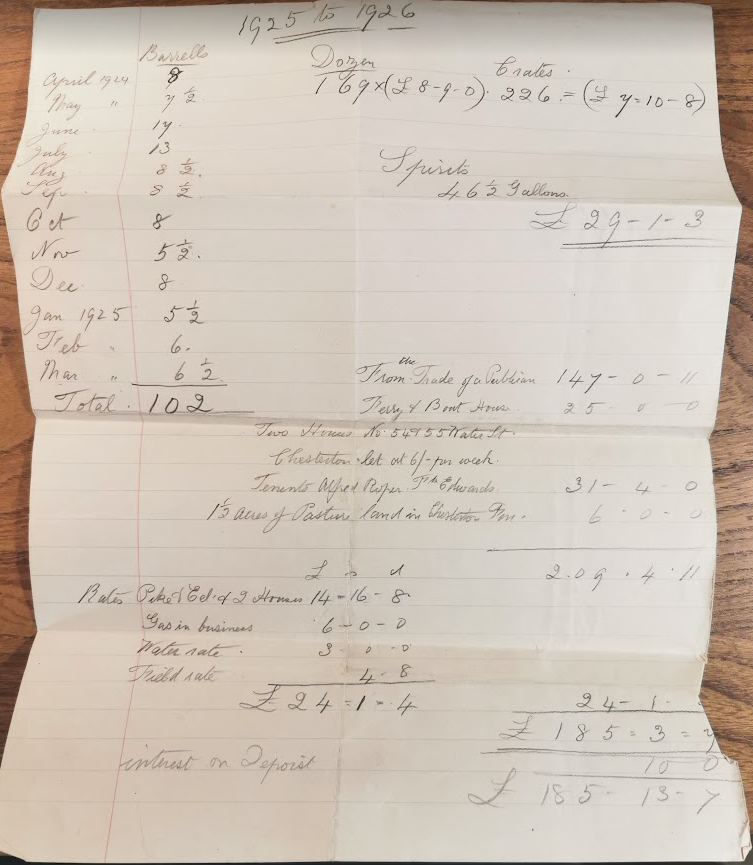 1925 to 1926
Barrells
Dozen
Crates.
April 1924 8
169 × (£ 8-9-0). 226. = (£ 7=10-8)
May " 7 ½
June . 17.
July 13
Aug 8 ½.
Sep. 8 ½
Spirits
46 ½ Gallons.
£ 29-1-3
Oct 8
Nov 5 ½.
Dec. 8
Jan 1925 5 ½
Feb " 6.
Mar " 6 ½
Total. 102
From the Trade of a Publican 147-0-11
Ferry & Boat House 25 0 0
Two Houses No. 54 & 55 Water St.
Chesterton. let at 6/- per week.
Tenents Alfred Roper. Edwards 31-4-0
1½ acres of Pasture land in Chesterton Fen. 6.0-0
209.4.11
£ s d
Rates Pike & Eel. & 2 Houses 14=16-8
Gas in business 6-0-0
Water rate . 3 0-0
Field rate 4-8
£ 24=1=.4
24-1.
£ 185=3=7
interest on Depoist 10 0
£ 185-13-7